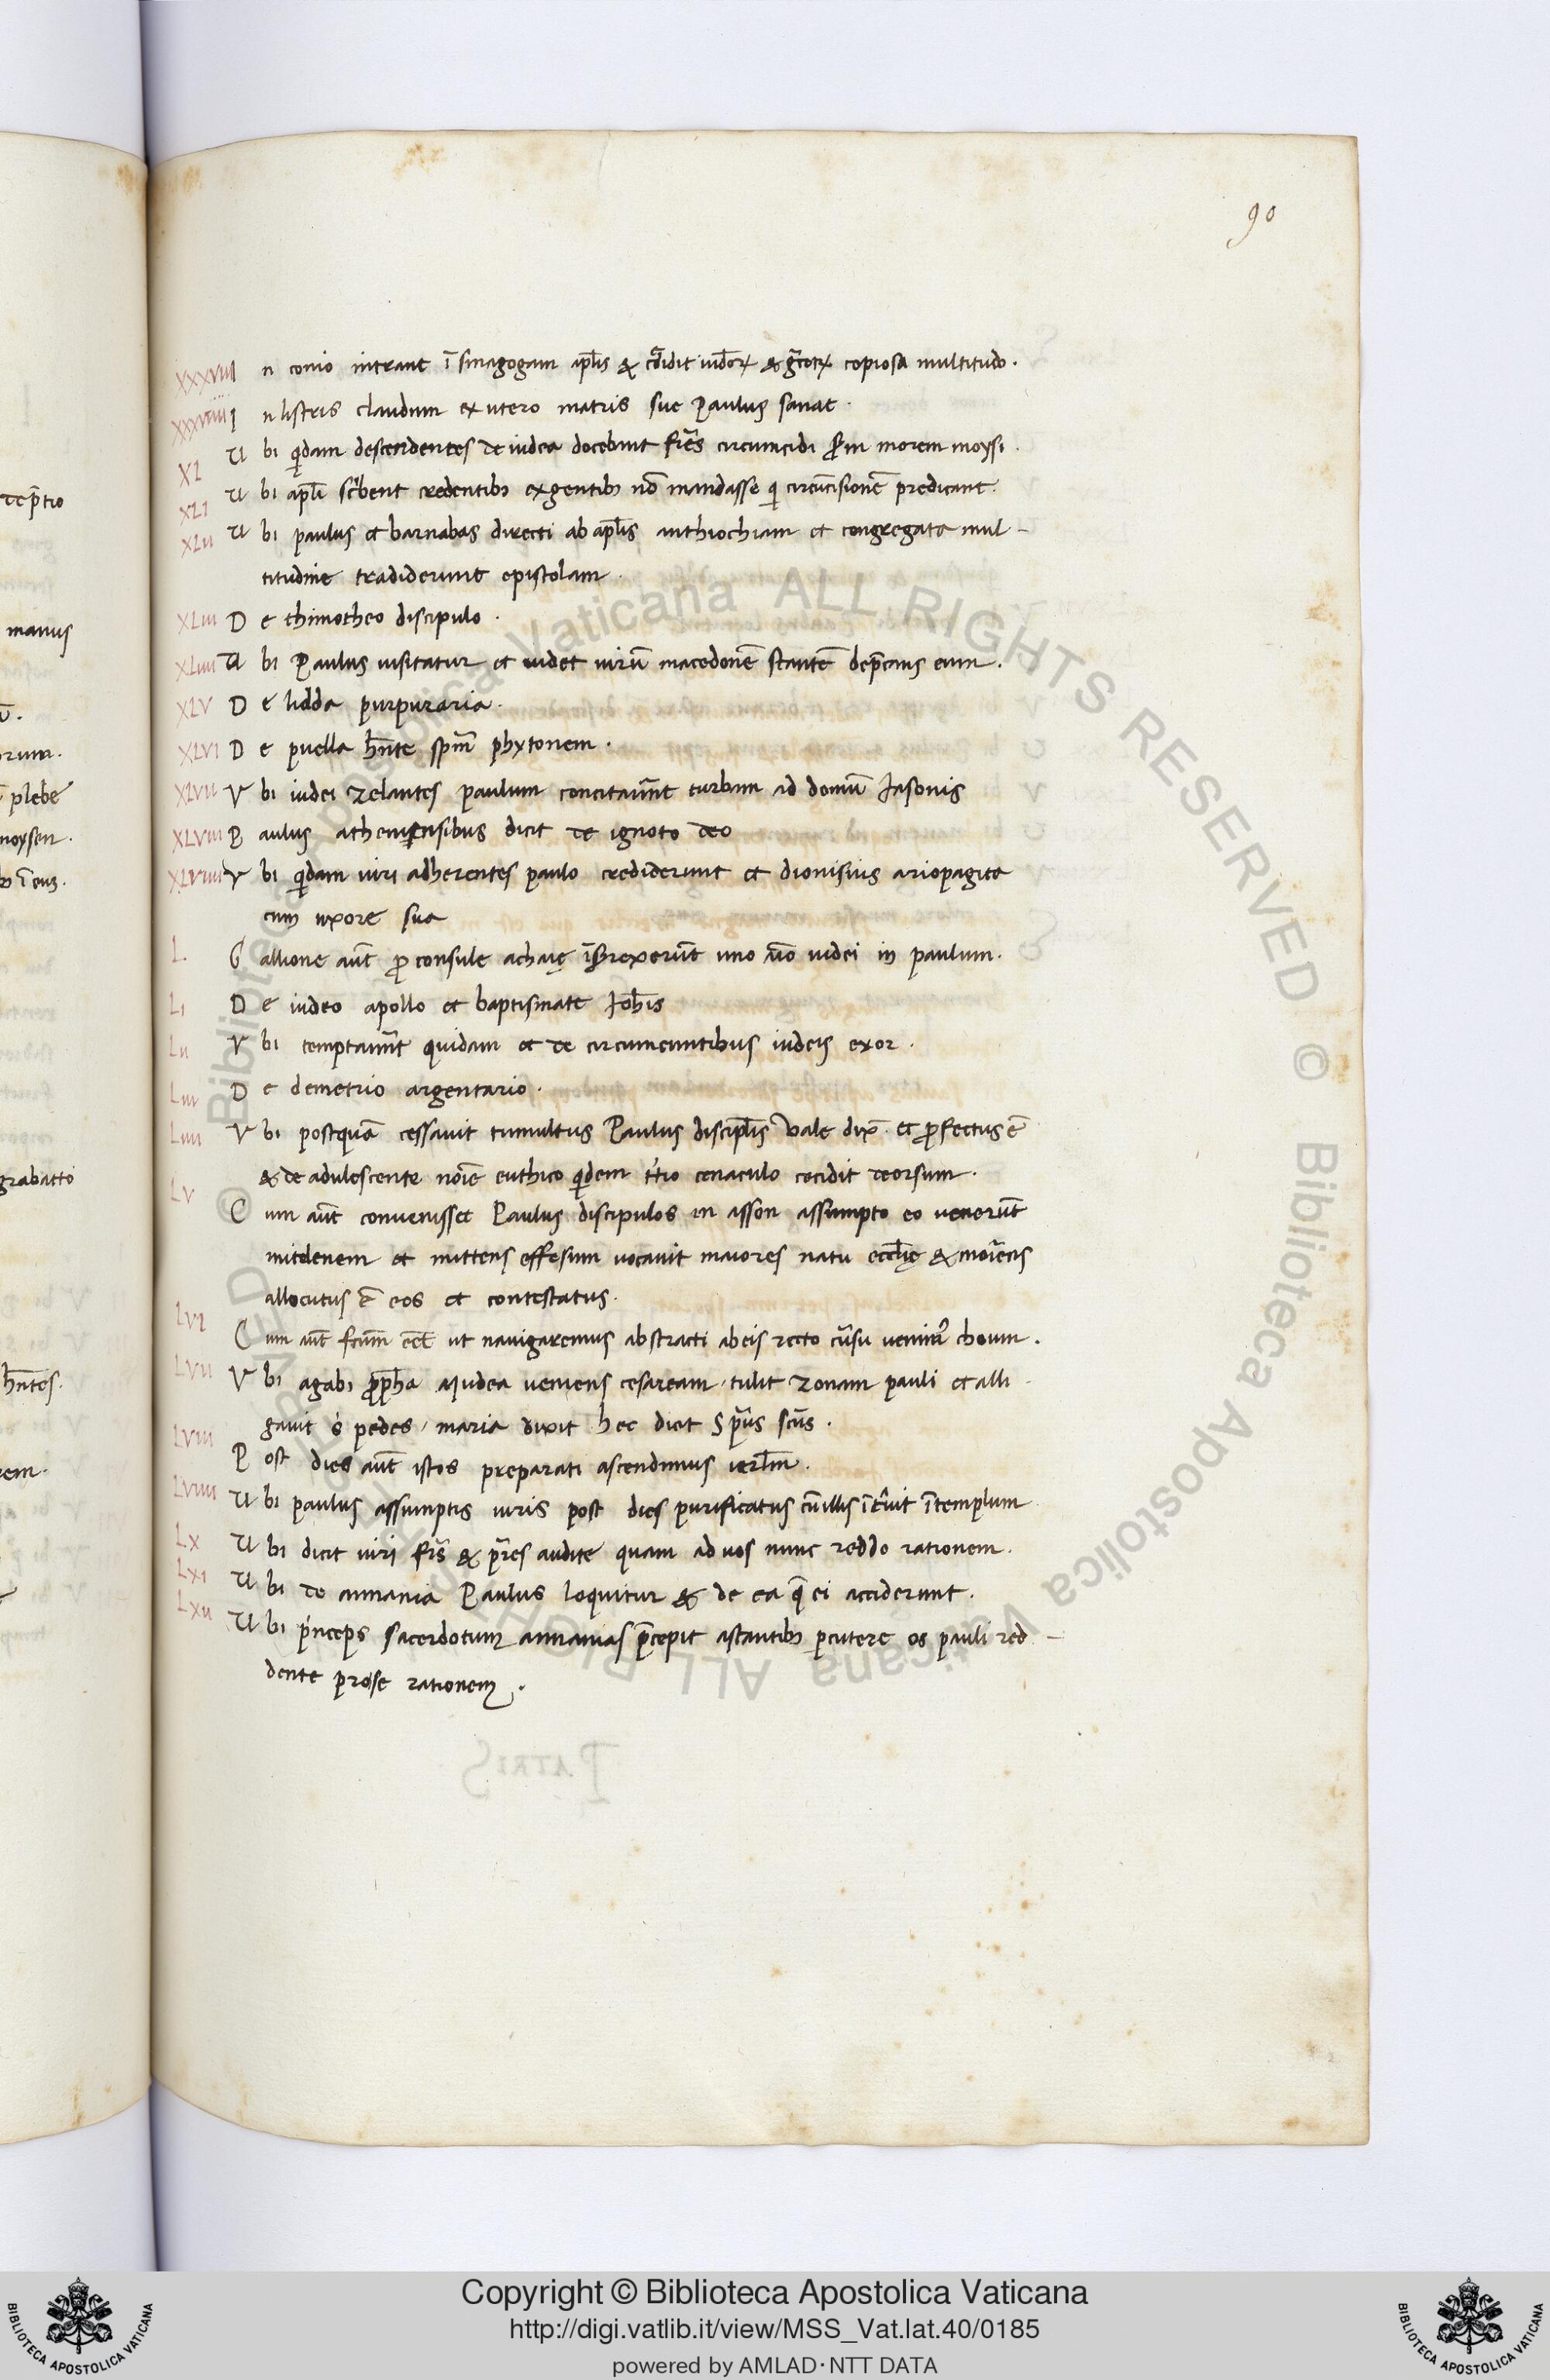 90
tep̄tio
manus
orum.
plebe
moysen.
grabatto
h̄ntes.
XXXVIII I n conio intrant ī sinagogam apl̄is & c̄didit iud̄oꝝ & gr̄coꝝ copiosa multitudo.
XXXVIIII I n listris claudum ex utero matris sue Paulus sanat.
XL U bi qidam descendentes de iudea docebant fr̄es circumcidi morem moysi.
XLI U bi apl̄i sc̄bent credentibꝫ ex gentibꝫ nō mandasse qi circūcisionē predicant.
XLII U bi paulus et barnabas directi ab apl̄is anthiochiam et congregata mul-
titudine tradiderunt epistolam.
XLIII D e thimotheo discipulo.
XLIIII U bi Paulus uisitatur et uidet uirū macedonē stantē dep̄cans eum.
XLV D e lidda purpuraria.
XLVI D e puella h̄nte sp̄m phytonem.
XLVII V bi iudei zelantes paulum concitaūnt turbam ad domū Jasonis
XLVIII P aulus atheniensibus dicit de ignoto deo
XLVIIII V bi qidam uiri adherentes paulo crediderunt et dionisius ariopagita
cum uxore sua
L G allione aūt ꝓ consule achaię īsurrexerūt uno aīo iudei in paulum.
LI D e iudeo apollo et baptismate Joh̄is
LII V bi temptaūnt quidam et de circumeuntibus iudeis exor.
LIII D e demetrio argentario.
LIIII V bi postquā cessauit tumultus Paulus discipl̄is Vale dix̄. et ꝓfectus ē
& de adulescente noīe euthico qidem t'tio cenaculo cecidit deorsum.
LV C um aūt conuenisset Paulus discipulos in asson assumpto eo uenerūt
mitelenem et mittens effesum uocauit maiores natu eccl̄ię &
allocutus ē eos et contestatus.
LVI C um aūt fc̄um eēt ut nauigaremus abstracti ab eis recto cūsu uenimꝰ choum.
LVII V bi agabi ꝓph̄a a iudea ueniens cesaream. tulit zonam pauli et alli
gauit s̓ pedes / maria dixit hec dicit sp̄us sc̄us.
LVIII P ost dies aūt istos preparati ascendimus ierl̄m.
LVIIII U bi paulus assumptis uiris post dies purificatus cū illis ītūit ī templum
LX U bi dicit uiri fr̄s & pr̄es audite quam ad uos nunc reddo rationem.
LXI U bi de annania Paulus loquitur & de ea q̄ ei acciderunt.
LXII U bi pʹnceps sacerdotum annanias p̄cepit astantibꝫ ꝑcutere os pauli red-
dente pro se rationem.
Copyright © Biblioteca Apostolica Vaticana
http://digi.vatlib.it/view/MSS_Vat.lat.40/0185
powered by AMLAD·NTT DATA
BIBLIOTECA APOSTOLICA VATICANA
BIBLIOTECA APOSTOLICA VATICANA
© Biblioteca Apostolica Vaticana ALL RIGHTS RESERVED © Biblioteca Apostolica Vaticana ALL RIGHTS RESERVED